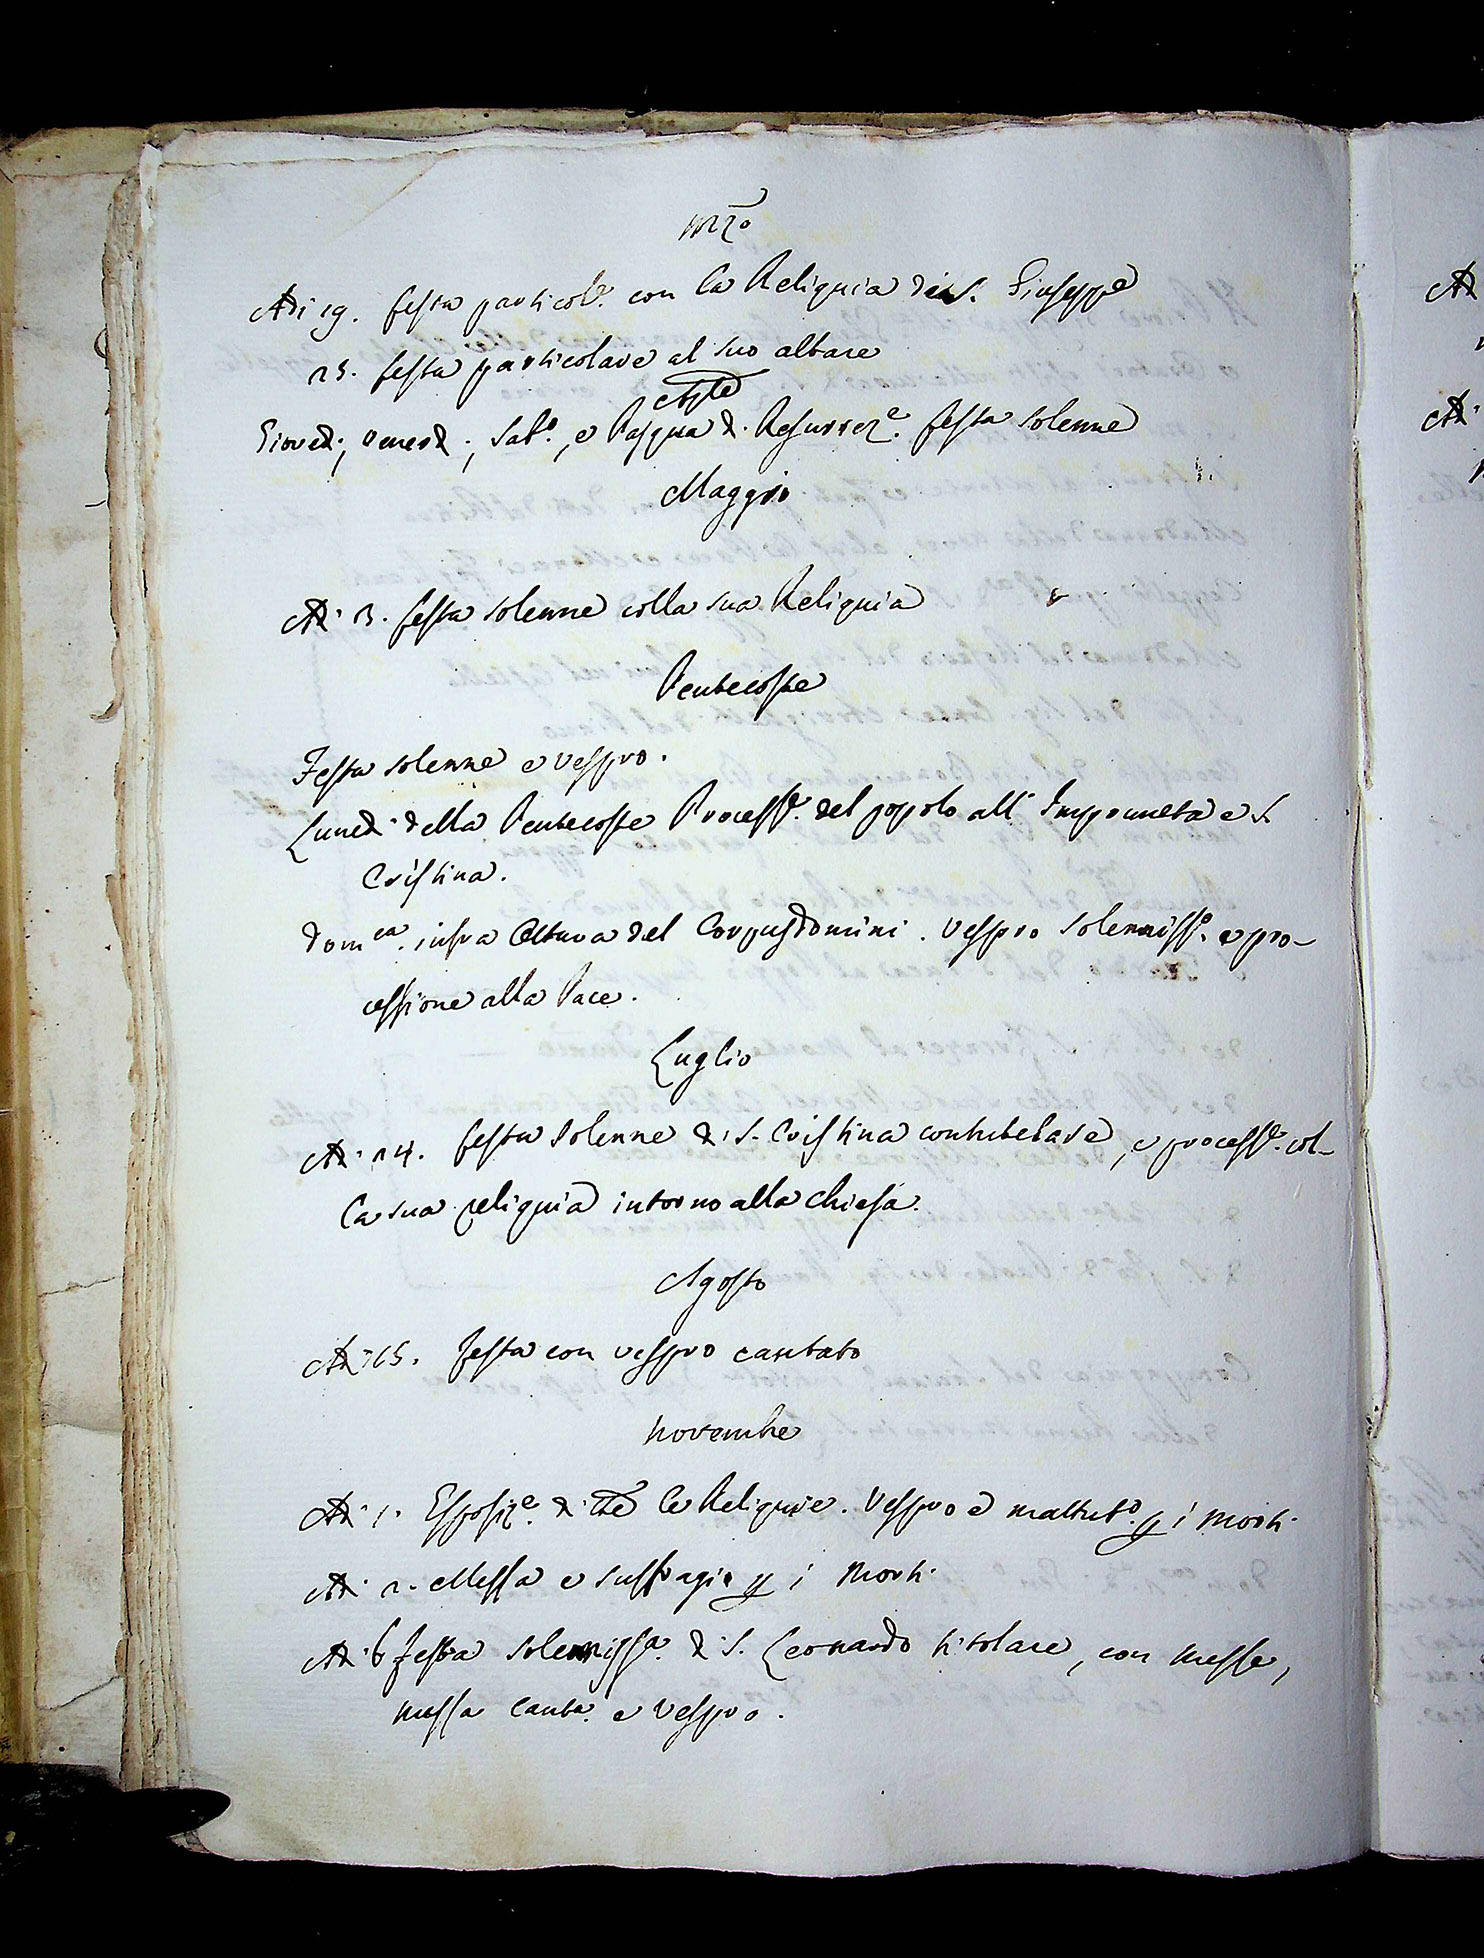 Mzo
Adi 19. festa particole. con la Reliquia di S. Giuseppe
25. festa particolare al suo altare
Aple
Giovedi, Venerdi, Sabo., e Pasqua di Resurreze. festa solenne
Maggio
Adi 3. festa solenne colla sua Reliquia
Pentecoste
Festa solenne e vespro.
Lunedi della Pentecoste Processe. del popolo all' Impruneta e S.
Cristina.
Domca. infra Ottava del Corpusdomini. Vespro solennisso. e pro-
cessione alla Pace.
Luglio
Adi 24. festa solenne di S. Cristina contitolare, e processe. col-
la sua reliquia intorno alla chiesa.
Agosto
Adi 15. festa con vespro cantato
Novembre
Adi 1. Esposize. di tte le Reliquie. Vespro e mattuto. p i Morti.
Adi 2. Messa e suffragio p i Morti.
Adi 6 festa solennissa. di S. Leonardo titolare, con messe,
messa canta. e vespro.
Ad
Ad